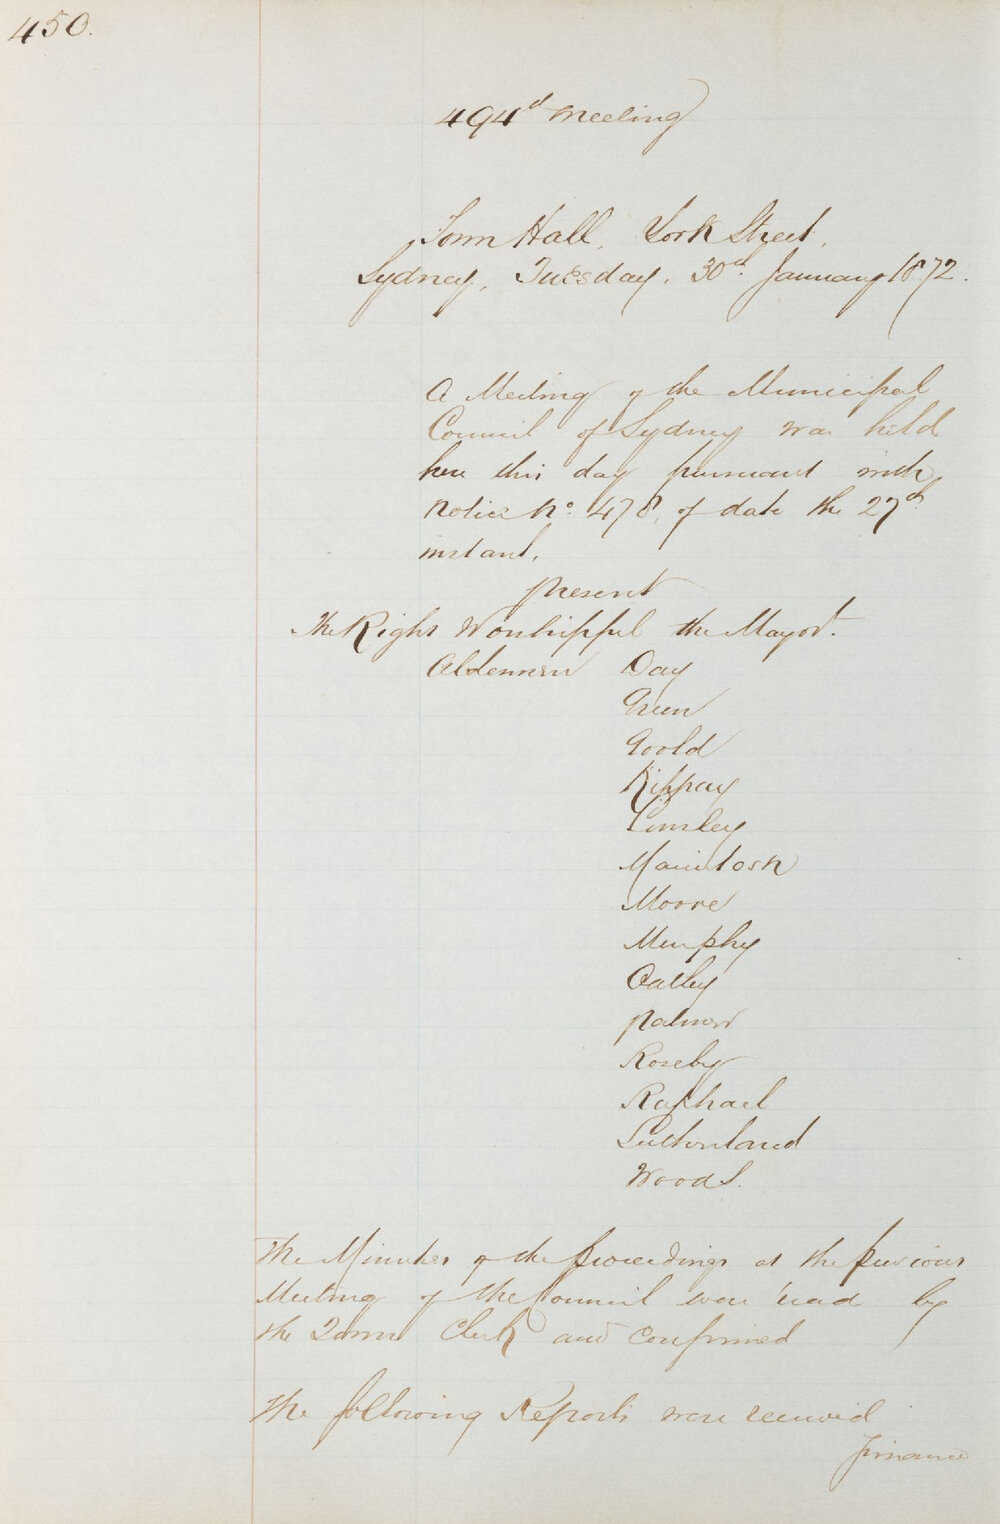 450.
494th Meeting
Town Hall, York Street,
Sydney, Tuesday, 30th January 1872.
A Meeting of the Municipal
Council of Sydney was held
here this day pursuant with
notice No. 478, of date the 27th
instant.
present
The Right Worshipful the Mayor.
Aldermen Day
Green
Goold
Kippax
Linsley
Macintosh
Moore
Murphy
Oatley
Palmer
Roseby
Raphael
Sutherland
Woods.
The Minutes of the proceedings at the previous
Meeting of the Council were read by
the Town Clerk and confirmed
The following Reports were received
Finance